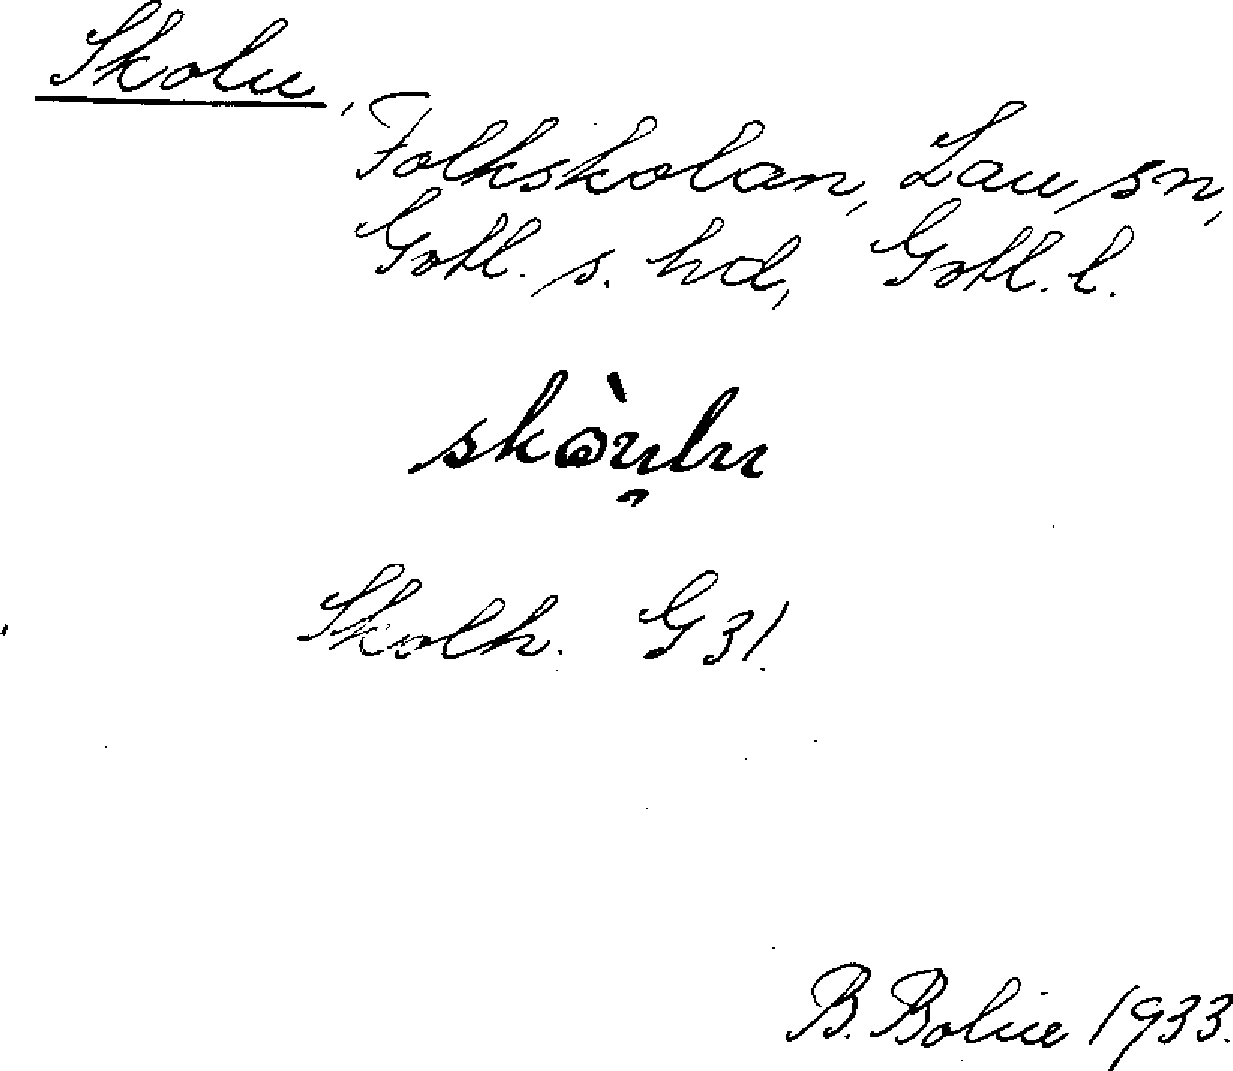 Skolu,
Folkskolan, Lau sn,
Gotl. s. hd, Gotl. l.
Skolh. G 31.
B. Bolin 1933.